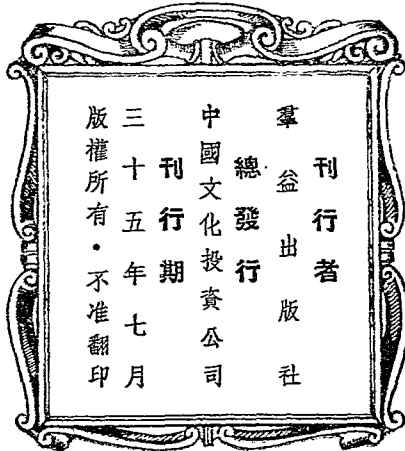 刊行者
羣益出版社
總發行
中國文化投資公司
刊行期
三十五年七月
版權所有·不准翻印